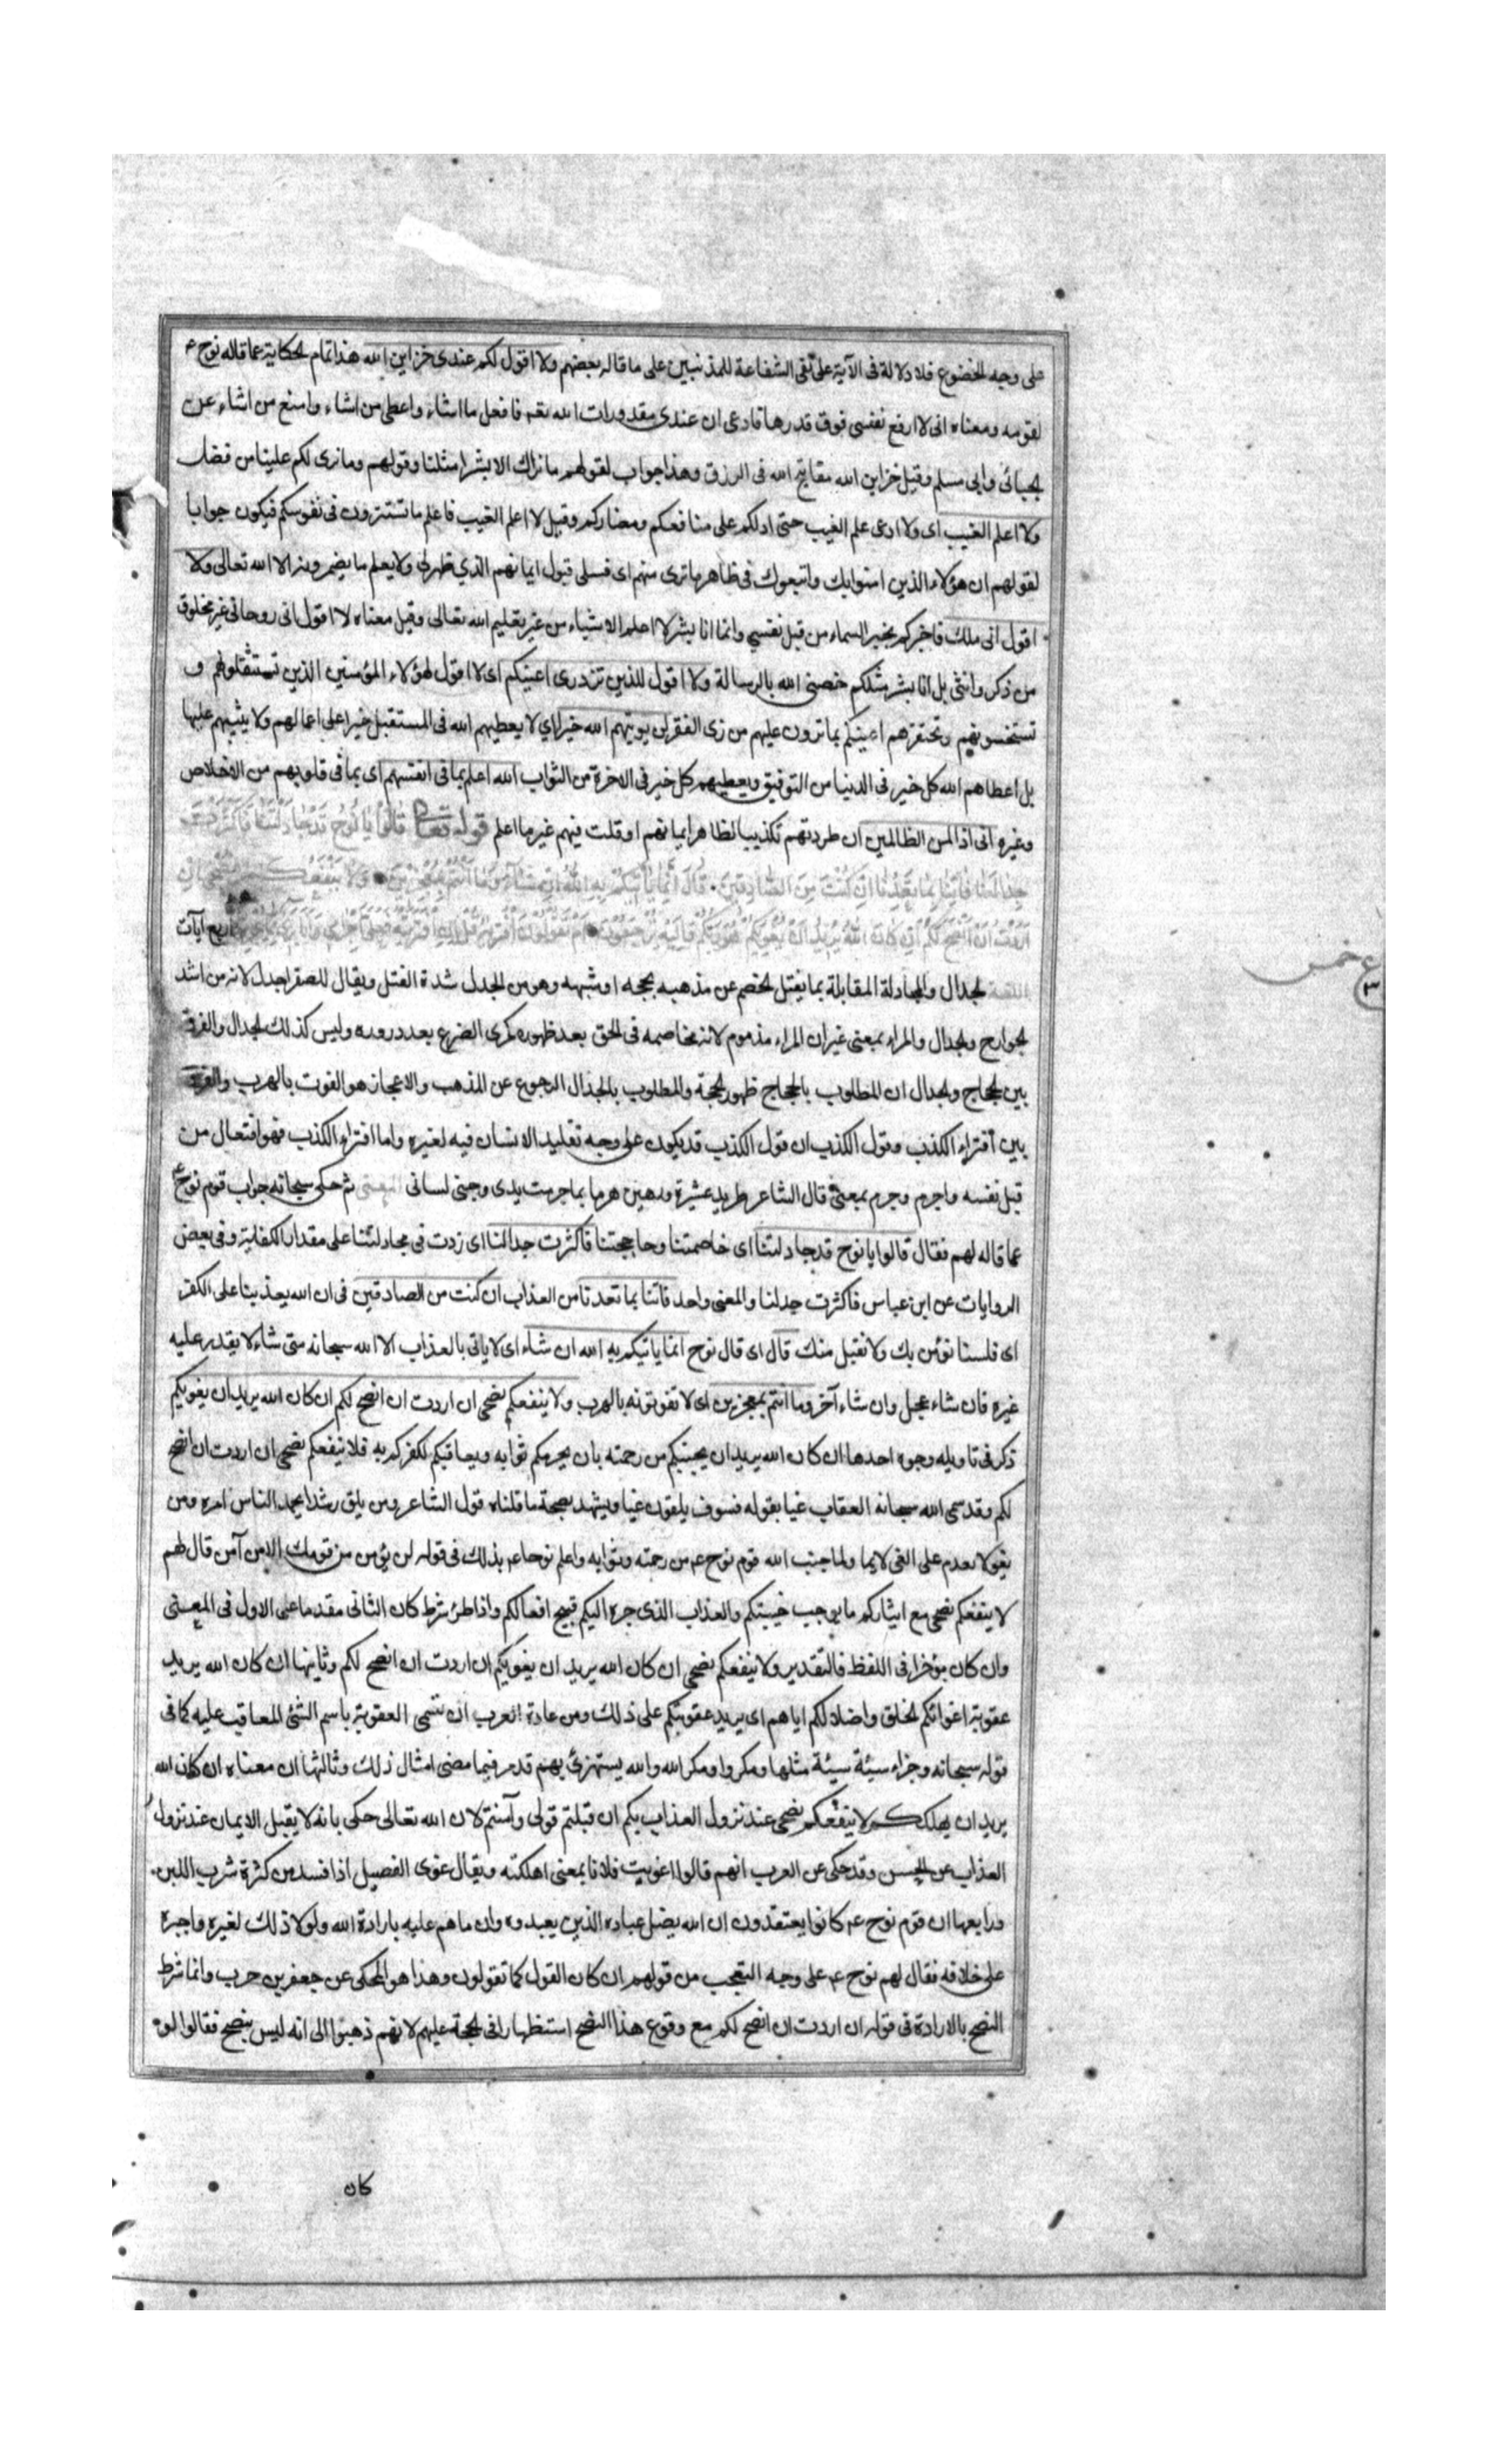 على وجه الخضوع فلا دلالة فى الآية على نفى الشفاعة للمذنبين على ما قاله بعضهم ولا اقول لكم عندى خزاين الله هذا تمام الحكاية عما قاله نوح ع
لقومه ومعناه انى لا ارفع نفسى فوق قدرها فادعى ان عندى مقدورات الله تعه فافعل ما اشاء واعطى من اشاء وامنع من اشاء عن
الجبائى وابى مسلم وقيل خزاين الله مفاتيح الله فى الرزق وهذا جواب لقولهم ما نراك الا بشرا مثلنا وقولهم وما نرى لكم علينا من فضل
ولا اعلم الغيب اى ولا ادعى علم الغيب حتى ادلكم على منافعكم ومضاركم وقيل لا اعلم الغيب فاعلم ما تستترون فى نفوسكم فيكون جوابا
لقولهم ان هؤلاء الذين امنوا بك واتبعوك فى ظاهر ما ترى منهم اى فسبيلى قبول ايمانهم الذي ظهر لى ولا يعلم ما يضمرونه الا الله تعالى ولا
اقول انى ملك فاخبركم بخبر السماء من قبل نفسي وانما انا بشر لا اعلم الاشياء من غير تعليم الله تعالى وقيل معناه لا اقول انى روحانى غير مخلوق
من ذكر وانثى بل انا بشر مثلكم خصنى الله بالرسالة ولا اقول للذين تزدرى اعينكم اى لا اقول لهؤلاء المؤمنين الذين تستثقلونهم و
تستخسونهم وتحتقرهم اعينكم بما ترون عليهم من زى الفقر لن يوتيهم الله خيرا اي لا يعطيهم الله فى المستقبل خيرا على اعمالهم ولا يثيبهم عليها
بل اعطاهم الله كل خير فى الدنيا من التوفيق ويعطيهم كل خير فى الاخرة من الثواب الله اعلم بما فى انفسهم اى بما فى قلوبهم من الاخلاص
وغيره انى اذا لمن الظالمين ان طردتهم تكذيبا لظاهر ايمانهم او قلت فيهم غير ما اعلم قوله تعالى قالوا يا نوح قد جادلتنا فاكثرت
جدالنا فاتنا بما تعدنا ان كنت من الصادقين قال انما ياتيكم به الله ان شاء وما انتم بمعجزين ولا ينفعكم نصحى ان
اردت ان انصح لكم ان كان الله يريد ان يغويكم هو ربكم واليه ترجعون ام يقولون افتريه قل ان افتريته فعلى اجرامى وانا برئ اربع آيات
اللغة الجدال والمجادلة المقابلة بما يفتل الخصم عن مذهبه بحجه او شبهه وهو من الجدل شدة الفتل ويقال للصقر اجدل لانه من اشد
الجوارح والجدال والمراء بمعنى غير ان المراء مذموم لانه مخاصمه فى الحق بعد ظهوره كمرى الضرع بعد دروره وليس كذلك الجدال والفرق
بين الحجاج والجدال ان المطلوب بالحجاج ظهور الحجة والمطلوب بالجدال الرجوع عن المذهب والاعجاز هو الفوت بالهرب والفرق
بين افتراء الكذب وقول الكذب ان قول الكذب قد يكون على وجه تقليد الانسان فيه لغيره واما افتراء الكذب فهو افتعال من
قبل نفسه واجرم وجرم بمعنى قال الشاعر طريد عشيرة ورهين هرما بما جرمت يدى وجنى لسانى المعنى ثم حكى سبحانه جواب قوم نوح ع
عما قاله لهم فقال قالوا يا نوح قد جادلتنا اى خاصمتنا وحاججتنا فاكثرت جدالنا اى زدت فى مجادلتنا على مقدار الكفاية وفى بعض
الروايات عن ابن عباس فاكثرت جدلنا والمعنى واحد فاتنا بما تعدنا من العذاب ان كنت من الصادقين فى ان الله يعذبنا على الكفر
اى فلسنا نؤمن بك ولا نقبل منك قال اى قال نوح انما ياتيكم به الله ان شاء اى لا ياتى بالعذاب الا الله سبحانه متى شاء لا يقدر عليه
غيره فان شاء عجل وان شاء آخر وما انتم بمعجزين اى لا تفوتونه بالهرب ولا ينفعكم نصحى ان اردت ان انصح لكم ان كان الله يريد ان يغويكم
ذكر فى تاويله وجوه احدها ان كان الله يريد ان يخيبكم من رحمته بان يحرمكم ثوابه ويعاقبكم لكفركم به فلا ينفعكم نصحى ان اردت ان انصح
لكم وقد سمى الله سبحانه العقاب غيا بقوله فسوف يلقون غيا ويشهد بصحة ما قلناه قول الشاعر ومن يلق رشدا يحمد الناس امره ومن
يغو لا يعدم على الغى لايما ولما خيب الله قوم نوح عم من رحمته وثوابه واعلم نوحا عم بذلك فى قوله لن يؤمن من قومك الا من آمن قال لهم
لا ينفعكم نصحى مع ايثاركم ما يوجب خيبتكم والعذاب الذى جره اليكم قبيح افعالكم واذا طرئ شرط كان الثانى مقدما على الاول فى المعنى
وان كان مؤخرا فى اللفظ فالتقدير ولا ينفعكم نصحى ان كان الله يريد ان يغويكم ان اردت ان انصح لكم وثانيها ان كان الله يريد
عقوبة اغوائكم الخلق واضلالكم اياهم اى يريد عقوبتكم على ذلك ومن عادة العرب ان تسمى العقوبة باسم الشئ المعاقب عليه كما فى
قوله سبحانه وجزاء سيئة سيئة مثلها ومكروا ومكر الله والله يستهزئ بهم قد مر فيما مضى امثال ذلك وثالثها ان معناه ان كان الله
يريد ان يهلككم لا ينفعكم نصحى عند نزول العذاب بكم ان قبلتم قولى وآمنتم لان الله تعالى حكى بانه لا يقبل الايمان عند نزول
العذاب عن الحسن وقد حكى عن العرب انهم قالوا اغويت فلانا بمعنى اهلكته ويقال غوى الفصيل اذا فسد من كثرة شرب اللبن
ورابعها ان قوم نوح عم كانوا يعتقدون ان الله يضل عباده الذين يعبدوه وان ما هم عليه بارادة الله ولولا ذلك لغيره واجبره
على خلافه فقال لهم نوح عم على وجه التعجب من قولهم ان كان القول كما تقولون وهذا هو المحكى عن جعفر بن حرب وانما شرط
النصح بالارادة فى قوله ان اردت ان انصح لكم مع وقوع هذا النصح استظهارا فى الحجة عليهم لانهم ذهبوا الى انه ليس بنصح فقالوا لو
كان